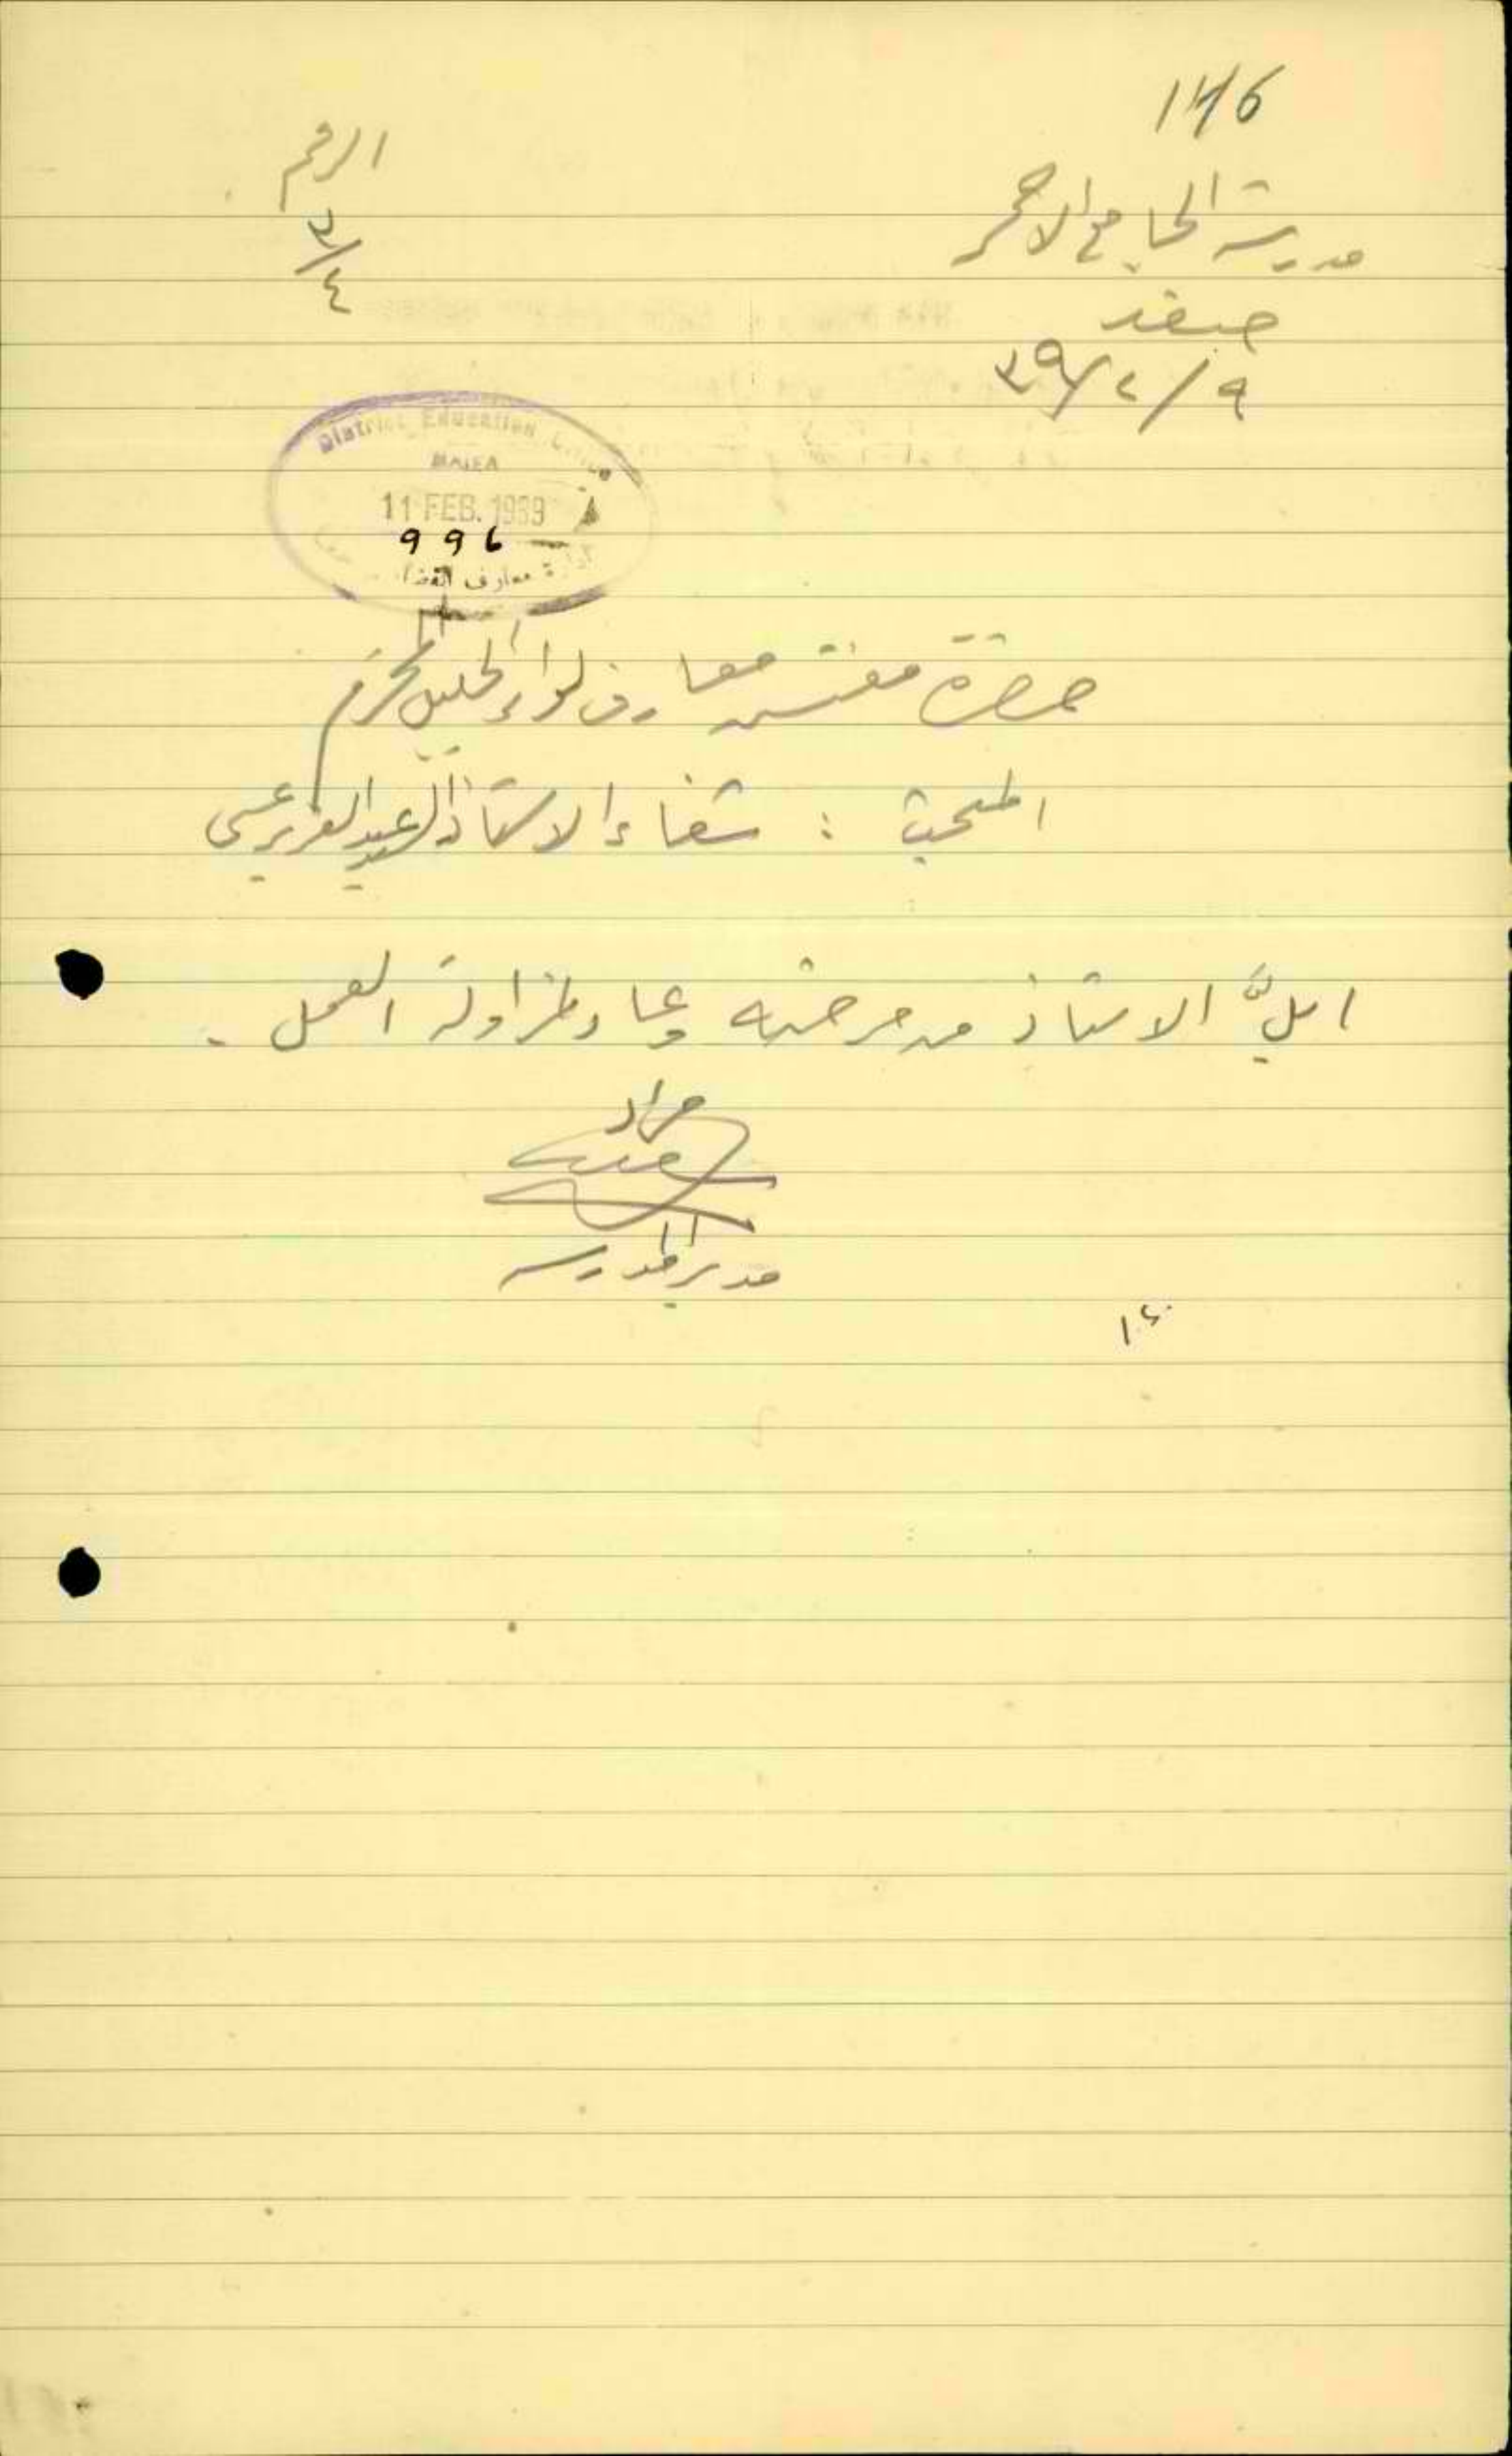 146
الرقم
٣/٤
مدرسة الجامع الاحمر
صفد
٣٩/٢/٩
District Education Office
HAIFA
11 FEB. 1939
996
ادارة معارف القضاء
حضرة مفتش معارف لواء الجليل المحترم
المبحث : شفاء الاستاذ السيد عبد العزيز عيسى
ابلّ الاستاذ من مرضه وعاد لمزاولة العمل .
مراد
مدير المدرسة